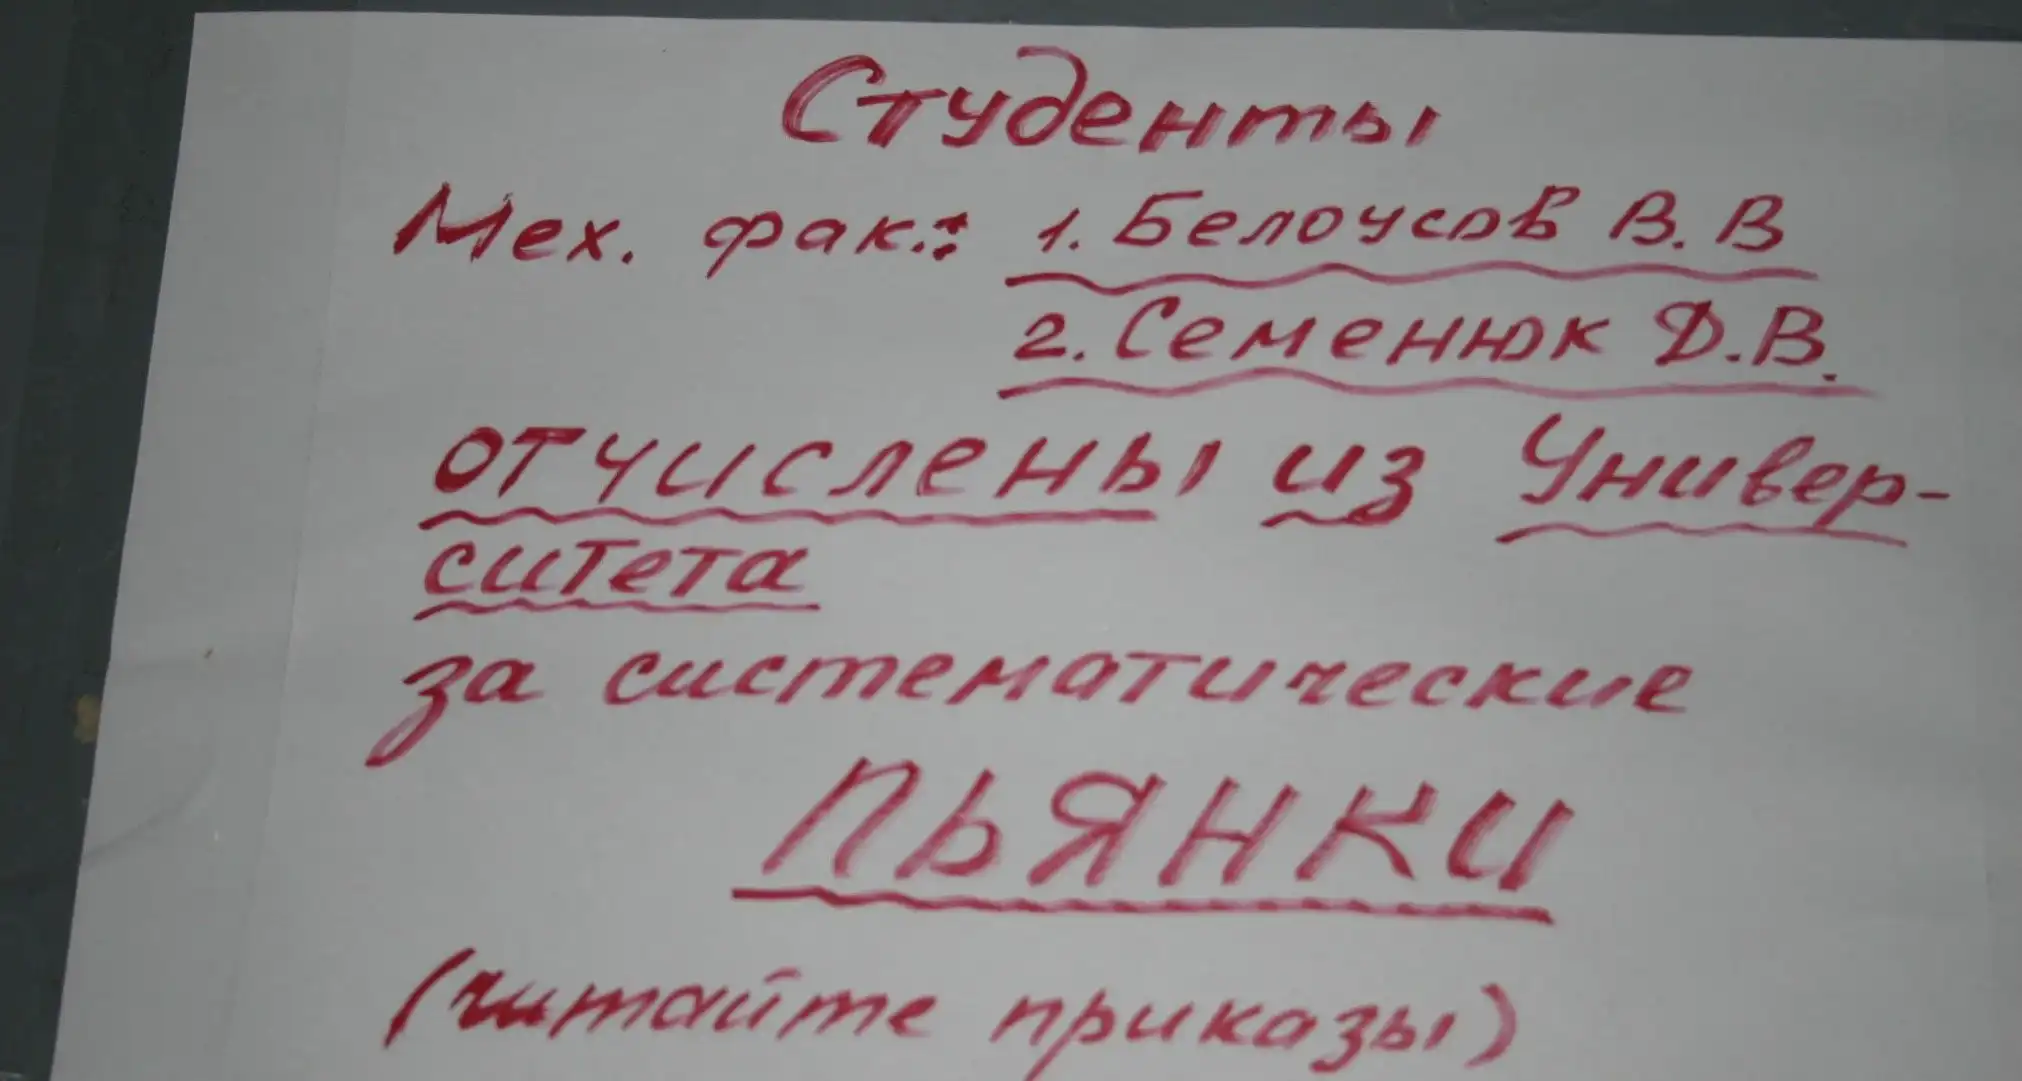 Студенты
Мех. фак.: 1. Белоусов В. В
2. Семенюк Д. В.
отчислены из Универ-
ситета
за систематические
ПЬЯНКИ
(читайте приказы)